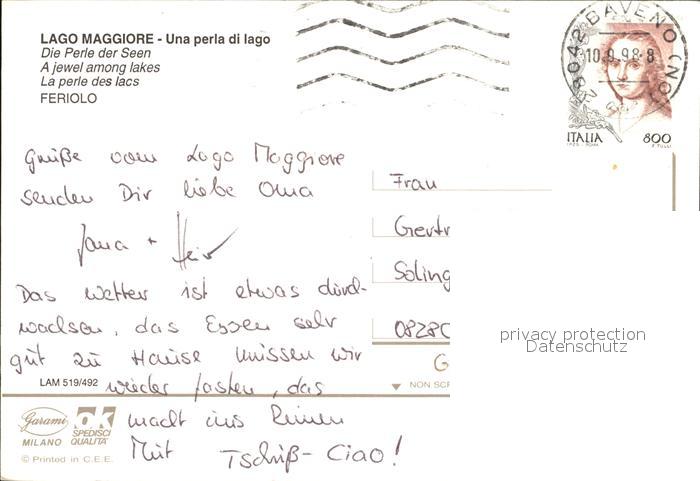 LAGO MAGGIORE - Una perla di lago
Die Perle der Seen
A jewel among lakes
La perle des lacs
FERIOLO
28042 BAVENO (NO)
10.9.98-8
ITALIA 800
Grüße vom Lago Maggiore
senden Dir liebe Oma
Jana +
Das Wetter ist etwas durch-
wachsen, das Essen sehr
gut zu Hause müssen wir
wieder fasten, das
macht ins Reinen
Mit Tschüß- Ciao!
Frau
Gertr
Soling
0828
privacy protection
Datenschutz
G
LAM 519/492
NON SCR
Garami
MILANO
ok
SPEDISCI
QUALITA'
© Printed in C.E.E.